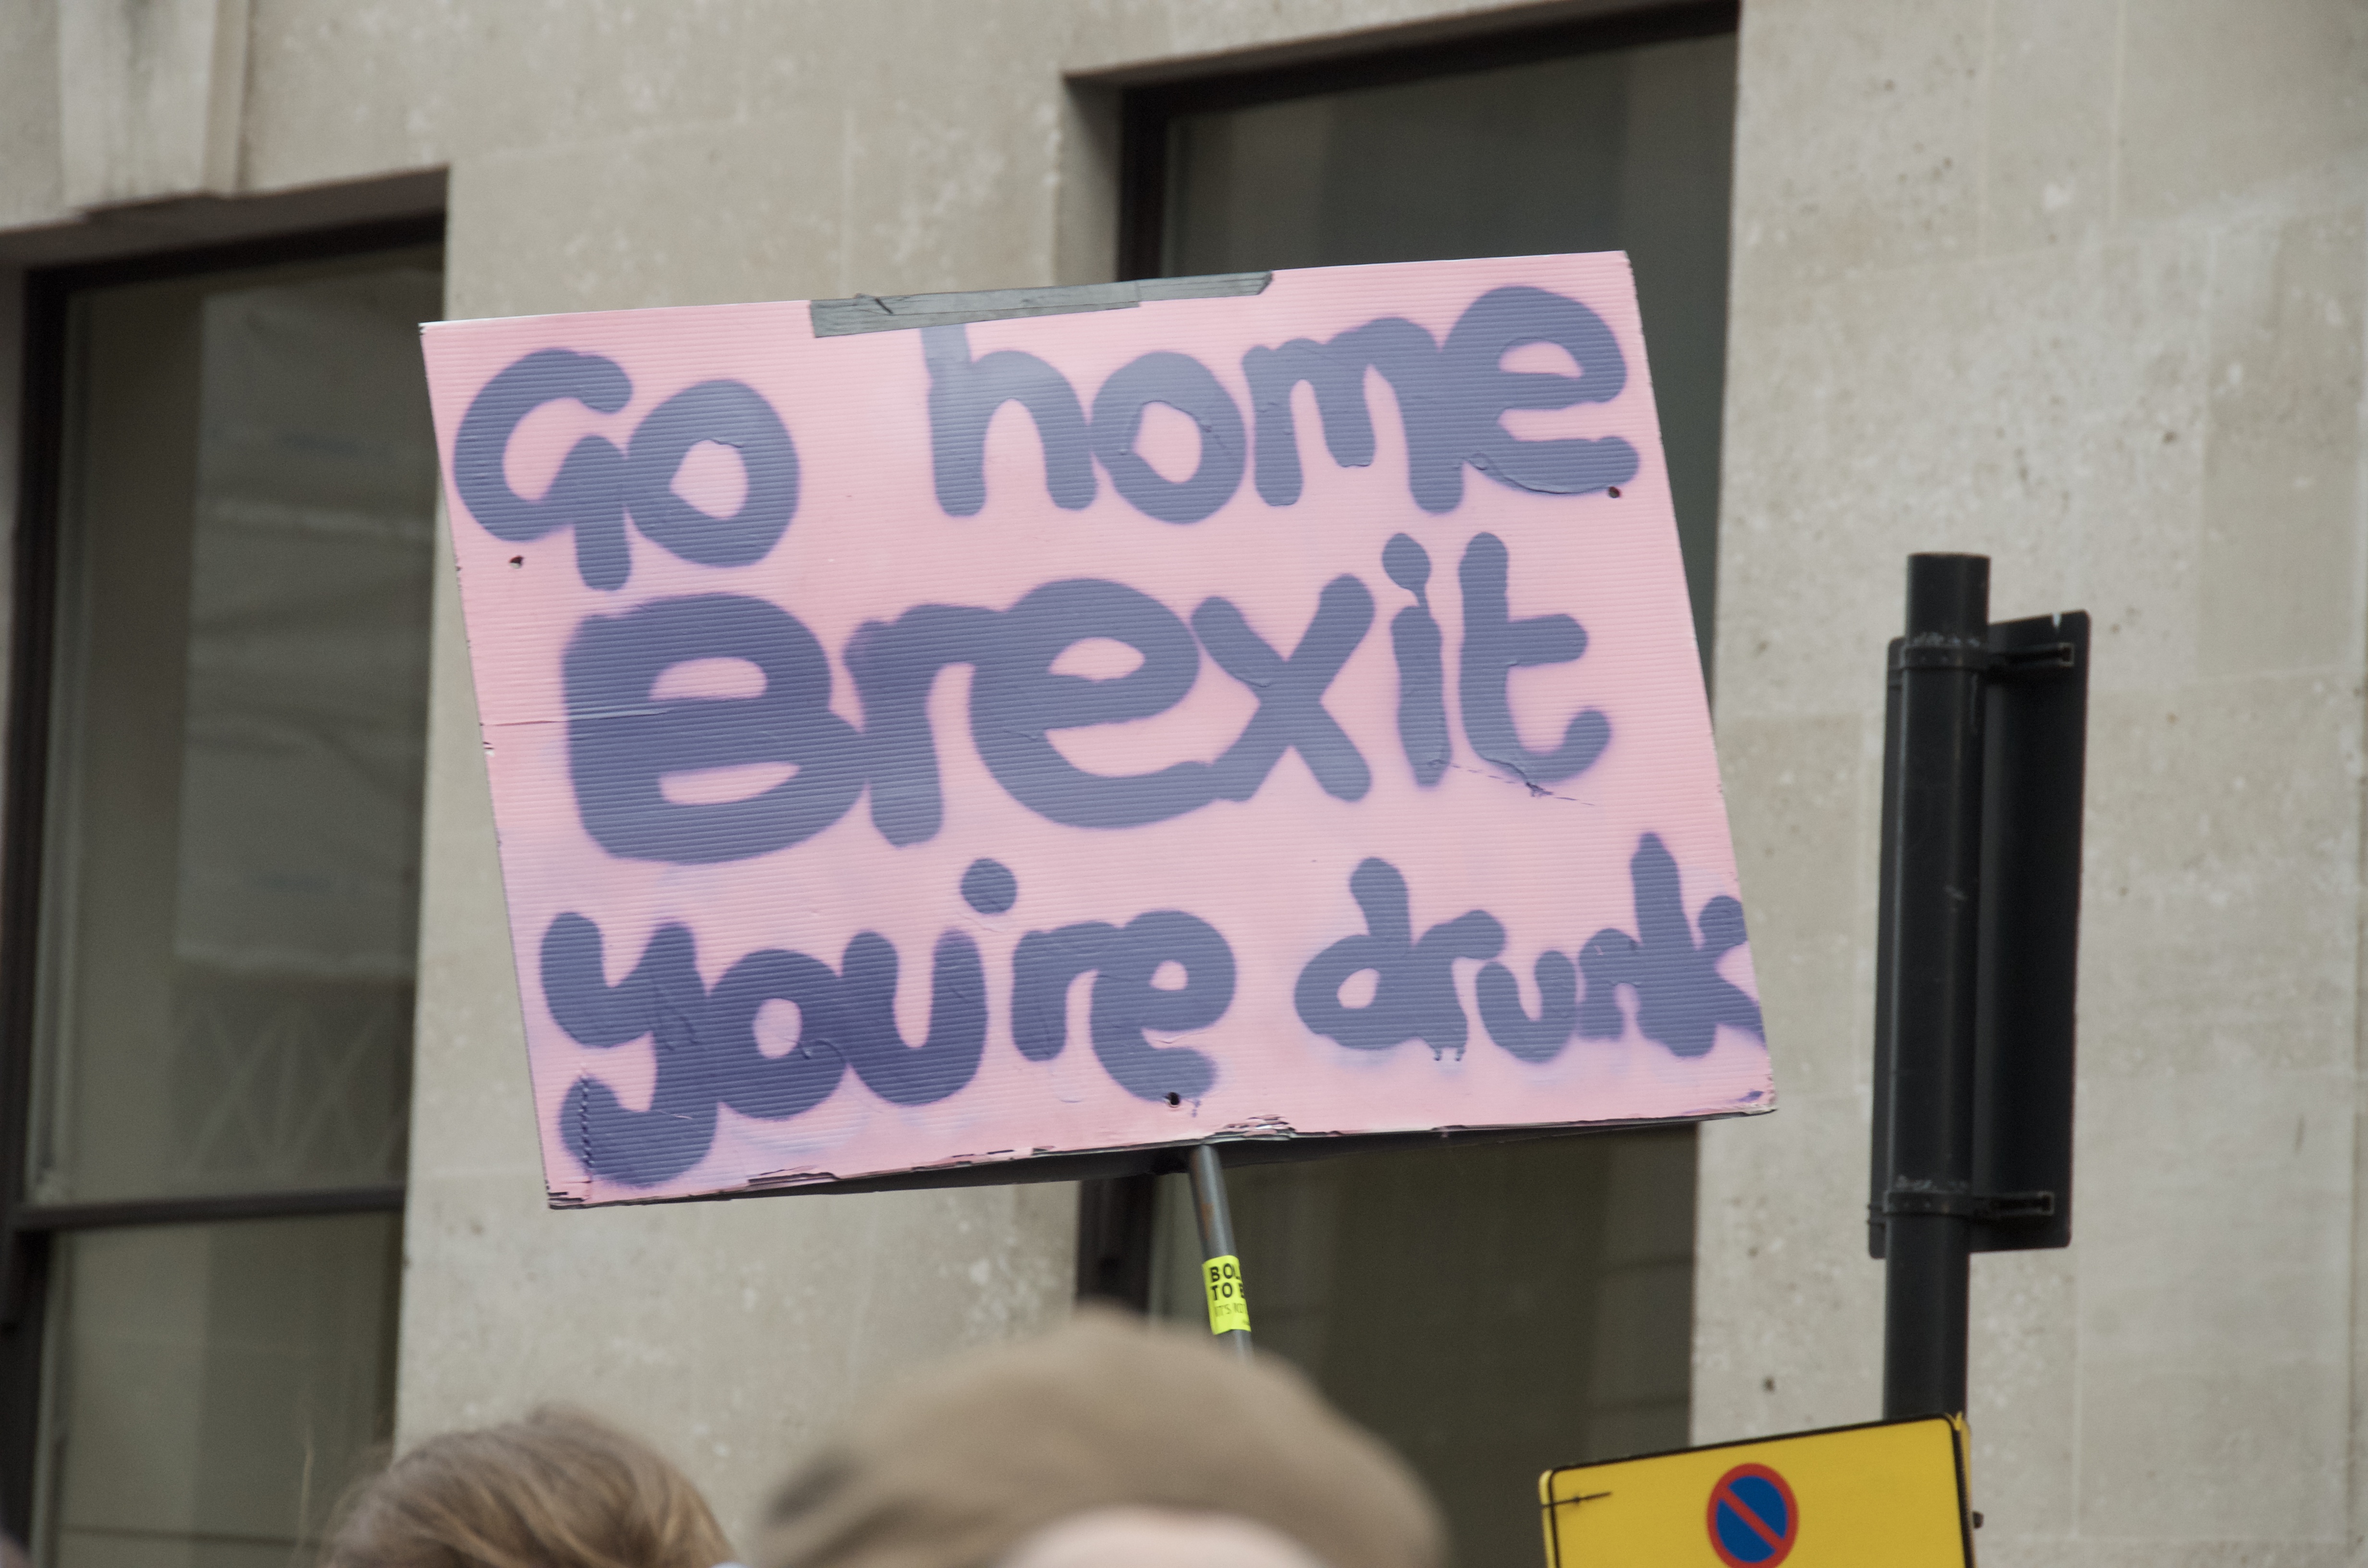 Go home
Brexit
you're drunk
TO
IT'S